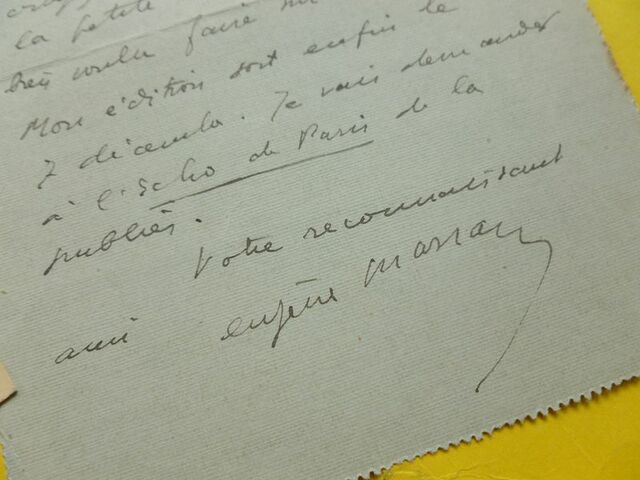 la petite
bien voulu faire sur
Mon édition sort enfin le
7 décembre. Je vais demander
à l'Echo de Paris de la
publier.
Votre reconnaissant
ami eugène Marsan